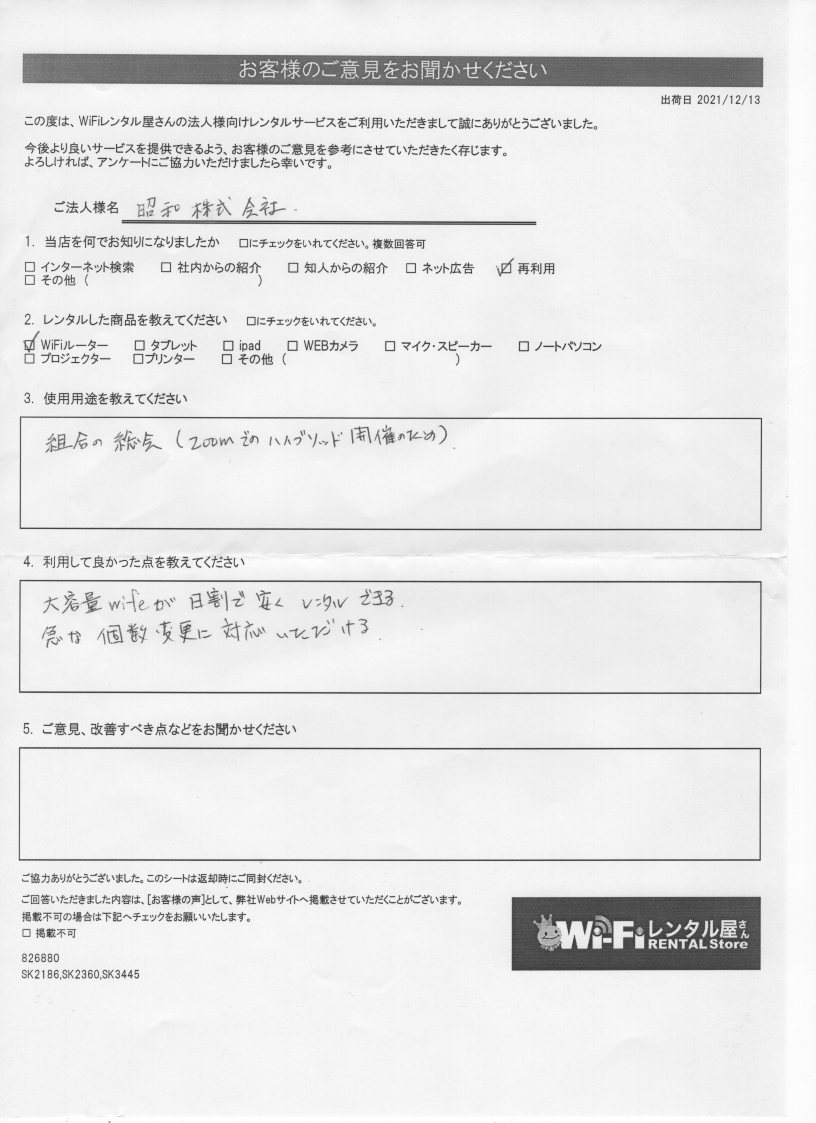 お客様のご意見をお聞かせください
出荷日 2021/12/13
この度は、WiFiレンタル屋さんの法人様向けレンタルサービスをご利用いただきまして誠にありがとうございました。
今後より良いサービスを提供できるよう、お客様のご意見を参考にさせていただきたく存じます。
よろしければ、アンケートにご協力いただけましたら幸いです。
ご法人様名 昭和株式会社.
1. 当店を何でお知りになりましたか □にチェックをいれてください。複数回答可
□ インターネット検索 □ 社内からの紹介 □ 知人からの紹介 □ ネット広告 ☑ 再利用
□ その他 ( )
2. レンタルした商品を教えてください □にチェックをいれてください。
☑ WiFiルーター □ タブレット □ ipad □ WEBカメラ □ マイク・スピーカー □ ノートパソコン
□ プロジェクター □プリンター □ その他 ( )
3. 使用用途を教えてください
組合の総会 (zoomでのハイブリッド開催のため).
4. 利用して良かった点を教えてください
大容量wifeが日割で安くレンタルできる.
急な個数変更に対応いただける.
5. ご意見、改善すべき点などをお聞かせください
ご協力ありがとうございました。このシートは返却時にご同封ください。
ご回答いただきました内容は、[お客様の声]として、弊社Webサイトへ掲載させていただくことがございます。
掲載不可の場合は下記へチェックをお願いいたします。
□ 掲載不可
826880
SK2186,SK2360,SK3445
Wi-Fiレンタル屋さん
RENTAL Store